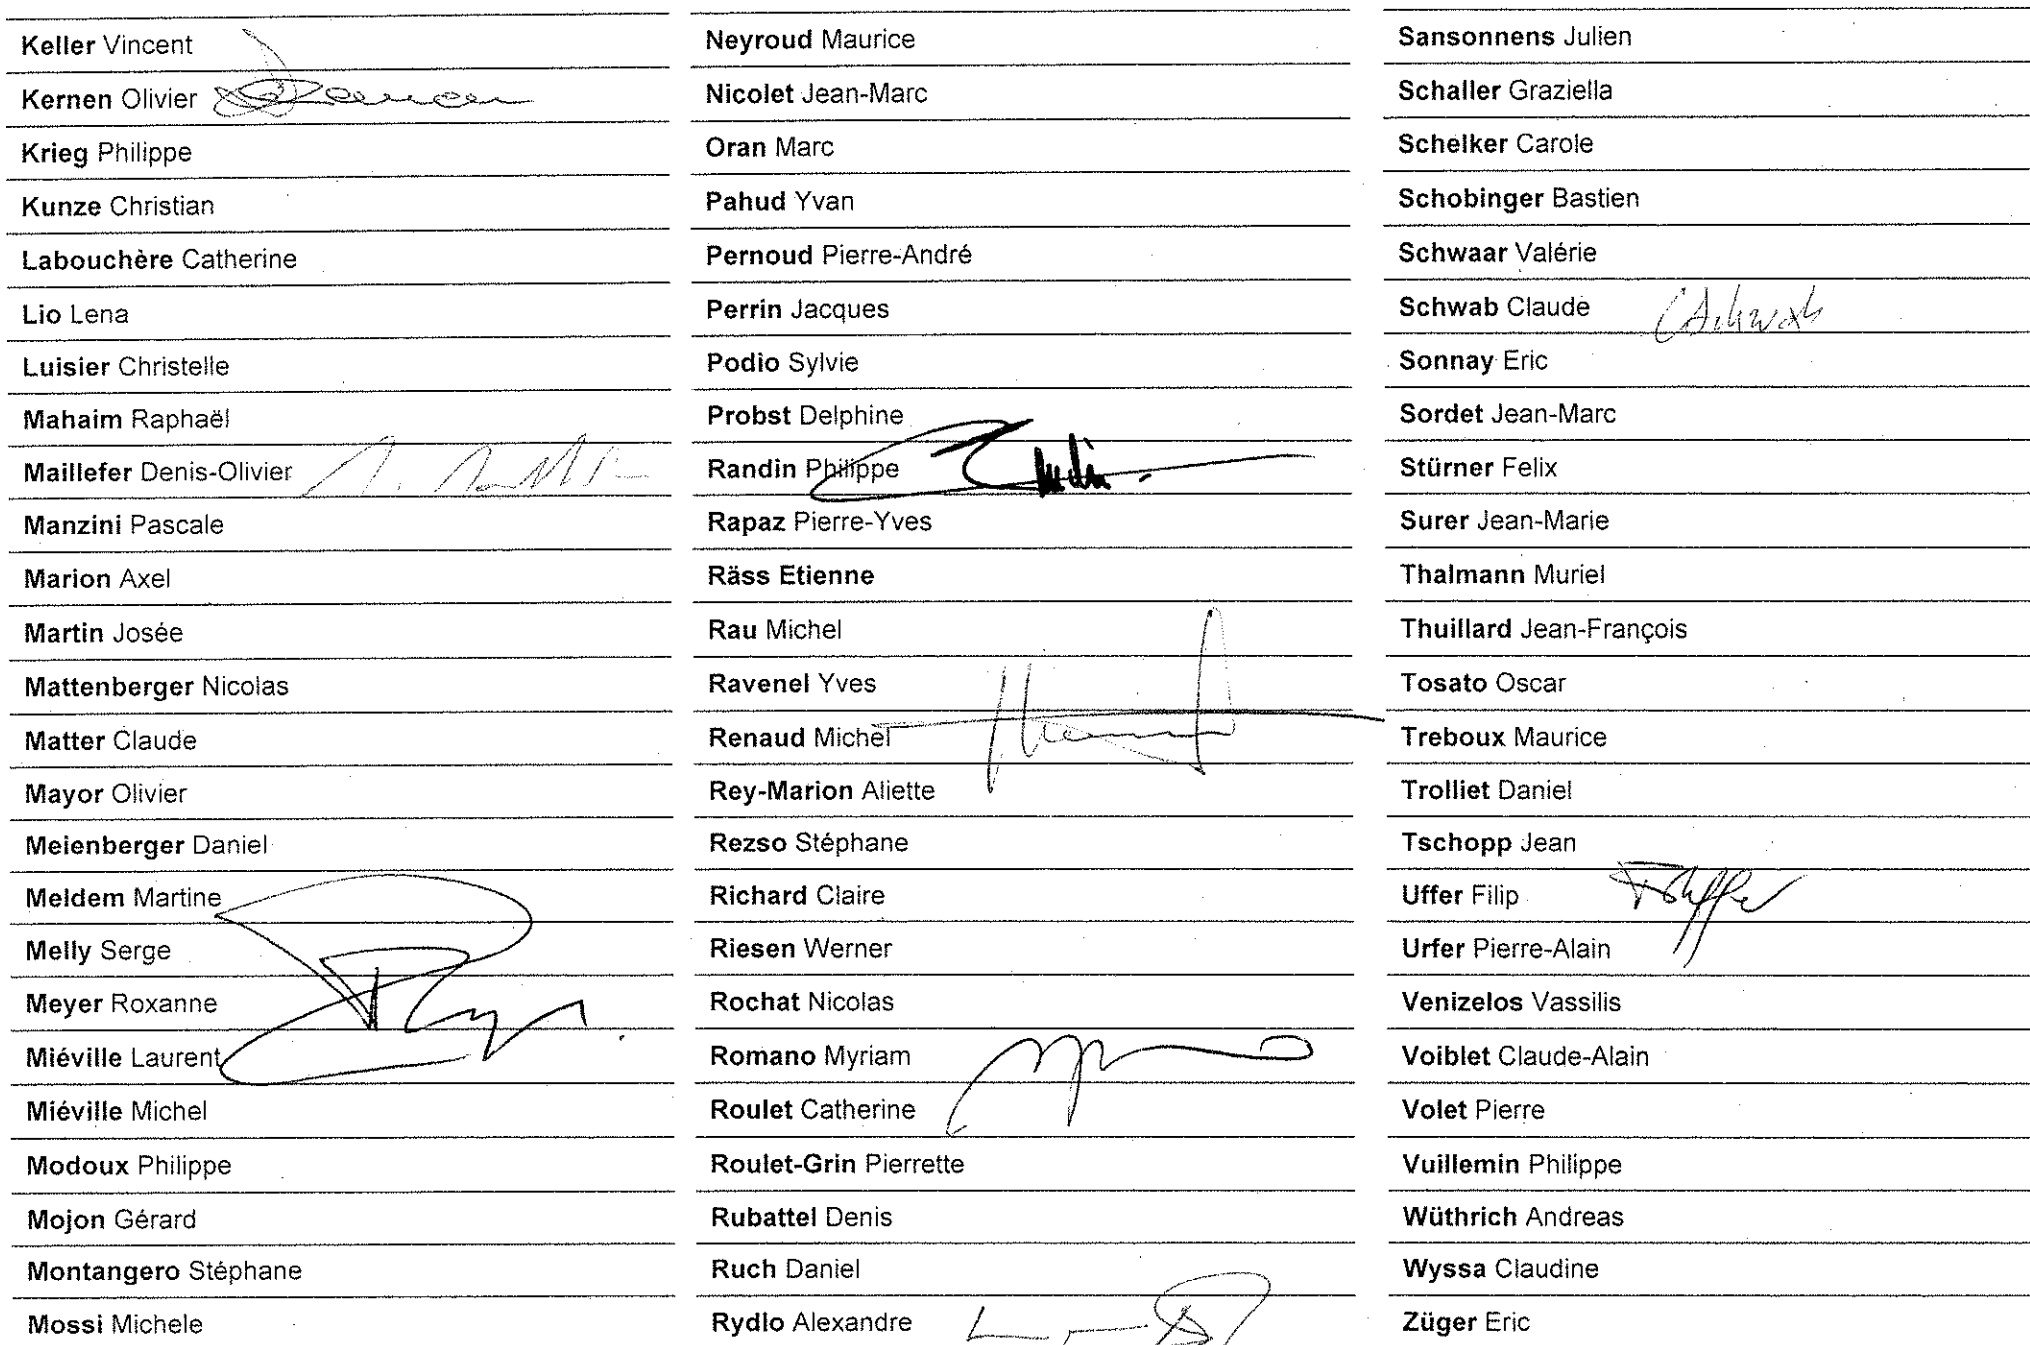 Keller Vincent
Kernen Olivier
Krieg Philippe
Kunze Christian
Labouchère Catherine
Lio Lena
Luisier Christelle
Mahaim Raphaël
Maillefer Denis-Olivier
Manzini Pascale
Marion Axel
Martin Josée
Mattenberger Nicolas
Matter Claude
Mayor Olivier
Meienberger Daniel
Meldem Martine
Melly Serge
Meyer Roxanne
Miéville Laurent
Miéville Michel
Modoux Philippe
Mojon Gérard
Montangero Stéphane
Mossi Michele
Neyroud Maurice
Nicolet Jean-Marc
Oran Marc
Pahud Yvan
Pernoud Pierre-André
Perrin Jacques
Podio Sylvie
Probst Delphine
Randin Philippe
Rapaz Pierre-Yves
Räss Etienne
Rau Michel
Ravenel Yves
Renaud Michel
Rey-Marion Aliette
Rezso Stéphane
Richard Claire
Riesen Werner
Rochat Nicolas
Romano Myriam
Roulet Catherine
Roulet-Grin Pierrette
Rubattel Denis
Ruch Daniel
Rydlo Alexandre
Sansonnens Julien
Schaller Graziella
Schelker Carole
Schobinger Bastien
Schwaar Valérie
Schwab Claude CSchwab
Sonnay Eric
Sordet Jean-Marc
Stürner Felix
Surer Jean-Marie
Thalmann Muriel
Thuillard Jean-François
Tosato Oscar
Treboux Maurice
Trolliet Daniel
Tschopp Jean
Uffer Filip
Urfer Pierre-Alain
Venizelos Vassilis
Voiblet Claude-Alain
Volet Pierre
Vuillemin Philippe
Wüthrich Andreas
Wyssa Claudine
Züger Eric